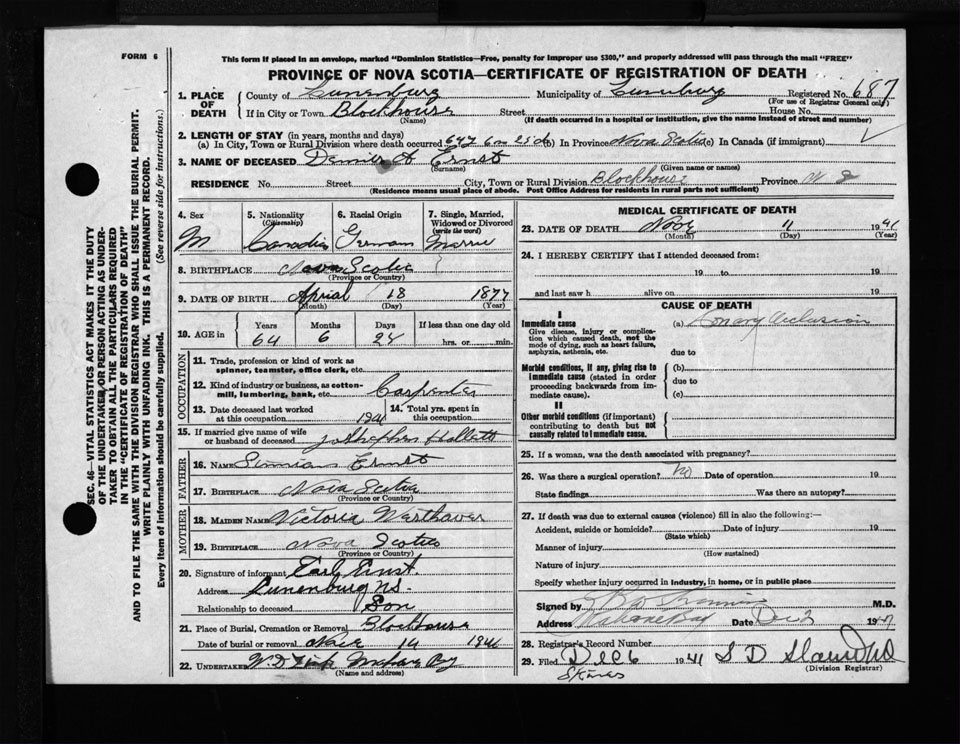 FORM 6
This form if placed in an envelope, marked "Dominion Statistics—Free, penalty for improper use $300," and properly addressed will pass through the mail "FREE"
PROVINCE OF NOVA SCOTIA—CERTIFICATE OF REGISTRATION OF DEATH
1. PLACE OF DEATH
County of Lunenburg Municipality of Lunenburg Registered No. 687
(For use of Registrar General only)
If in City or Town Blockhouse Street House No.
(Name) (If death occurred in a hospital or institution, give the name instead of street and number)
2. LENGTH OF STAY (in years, months and days)
(a) In City, Town or Rural Division where death occurred 64 y 6 m 25 d (b) In Province Nova Scotia (c) In Canada (if immigrant)
3. NAME OF DECEASED A Ernst
(Surname) (Given name or names)
RESIDENCE No. Street City, Town or Rural Division Blockhouse Province N S
(Residence means usual place of abode. Post Office Address for Residents in rural parts not sufficient)
4. Sex M
5. Nationality (Citizenship)
6. Racial Origin German
7. Single, Married, Widowed or Divorced (write the word)
8. BIRTHPLACE Nova Scotia
(Province or Country)
9. DATE OF BIRTH Aprial 18 1877
(Month) (Day) (Year)
10. AGE in Years Months Days If less than one day old
64 6 24 hrs. or min.
OCCUPATION
11. Trade, profession or kind of work as spinner, teamster, office clerk, etc.
12. Kind of industry or business, as cotton-mill, lumbering, bank, etc. Carpenter
13. Date deceased last worked at this occupation 1941
14. Total yrs. spent in this occupation
15. If married give name of wife or husband of deceased
FATHER
16. NAME Ernst
17. BIRTHPLACE Nova Scotia
(Province or Country)
MOTHER
18. MAIDEN NAME Victoria
19. BIRTHPLACE Nova Scotia
(Province or Country)
20. Signature of informant Earl Ernst.
Address Lunenburg NS.
Relationship to deceased Son
21. Place of Burial, Cremation or Removal Blockhouse
Date of burial or removal 14 1941
22. UNDERTAKER
(Name and address)
MEDICAL CERTIFICATE OF DEATH
23. DATE OF DEATH Nov 11 1941
(Month) (Day) (Year)
24. I HEREBY CERTIFY that I attended deceased from:
19 to 19
and last saw h alive on 19
CAUSE OF DEATH
I
Immediate cause
Give disease, injury or complication which caused death, not the mode of dying, such as heart failure, asphyxia, asthenia, etc.
(a) occlusion
due to
Morbid conditions, if any, giving rise to immediate cause (stated in order proceeding backwards from immediate cause).
(b)
due to
(c)
II
Other morbid conditions (if important) contributing to death but not causally related to immediate cause.
25. If a woman, was the death associated with pregnancy?
26. Was there a surgical operation? no Date of operation 19
State findings Was there an autopsy?
27. If death was due to external causes (violence) fill in also the following:—
Accident, suicide or homicide? Date of injury 19
(State which)
Manner of injury
(How sustained)
Nature of injury
Specify whether injury occurred in industry, in home, or in public place
Signed by M.D.
Address Mahone Bay Date Dec 2 19
28. Registrar's Record Number
29. Filed Dec 6 1941 S D
(Division Registrar)
SEC. 46—VITAL STATISTICS ACT MAKES IT THE DUTY
OF THE UNDERTAKER OR PERSON ACTING AS UNDERTAKER
TO OBTAIN ALL THE PARTICULARS REQUIRED
IN THE "CERTIFICATE OF REGISTRATION OF DEATH"
AND TO FILE THE SAME WITH THE DIVISION REGISTRAR WHO SHALL ISSUE THE BURIAL PERMIT.
WRITE PLAINLY WITH UNFADING INK. THIS IS A PERMANENT RECORD.
Every item of information should be carefully supplied. (See reverse side for instructions.)